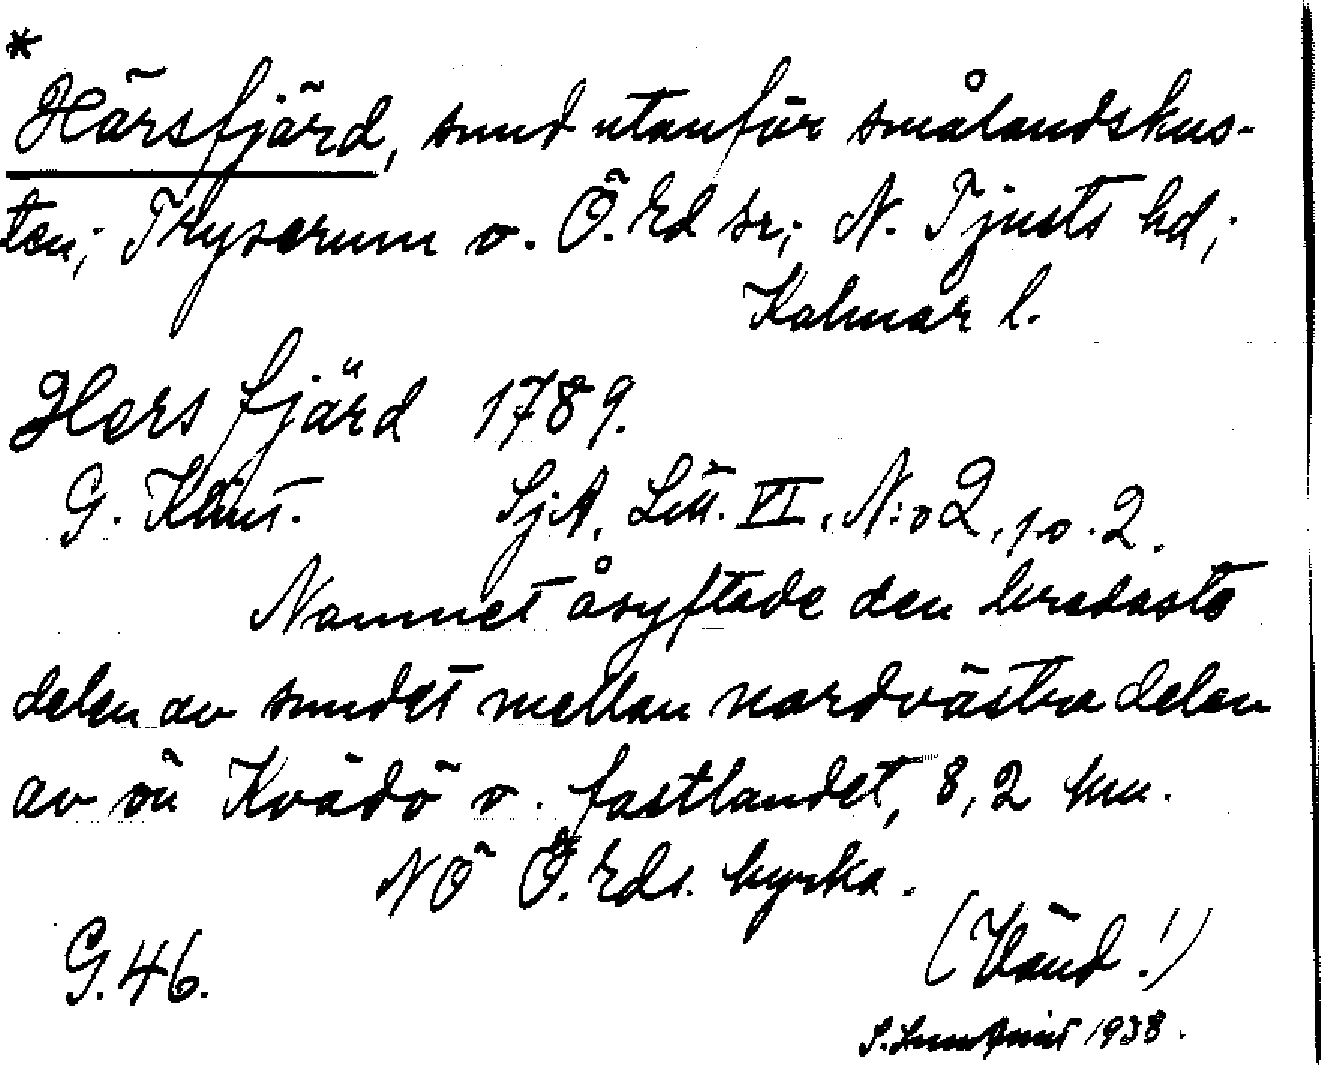 *
Härsfjärd, sund utanför smålandskus-
ten; Tryserum o. Ö. Ed sr; N. Tjusts hd;
Kalmar l.
Hers fjärd 1789.
G. Klint. SjA, Litt. VI, N:o 2, p. 2.
Namnet åsyftade den bredaste
delen av sundet mellan nordvästra delen
av ön Kvädö o. fastlandet, 8,2 km.
NÖ Ö. Eds kyrka.
(Vänd!)
G. 46.
S. Lundqvist 1938.